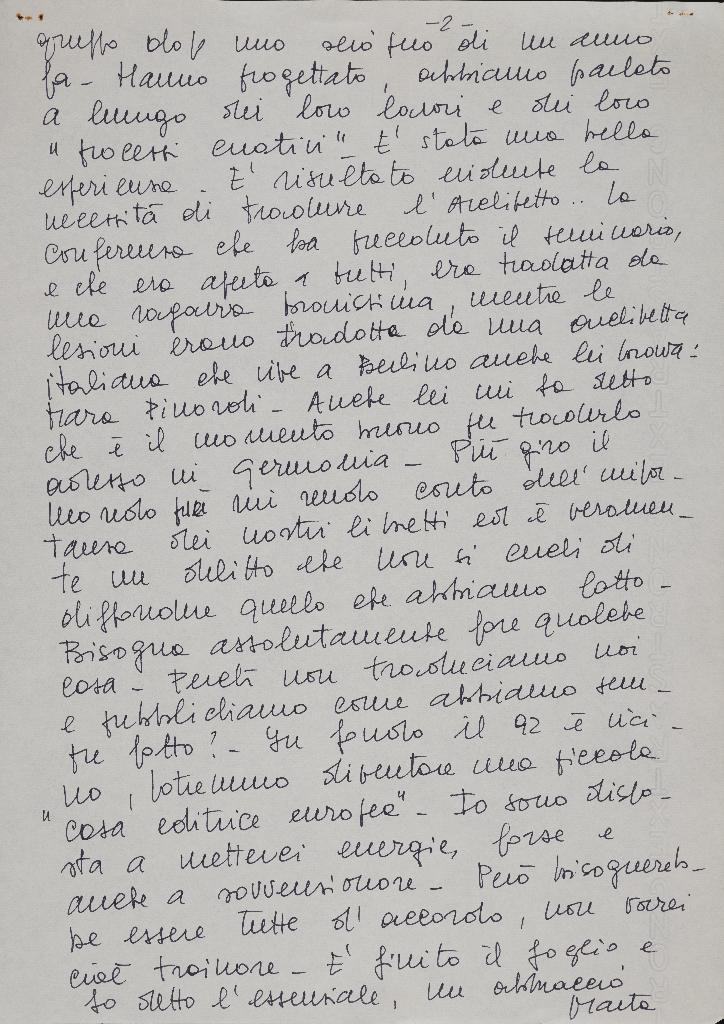 -2-
gruppo dopo uno serò fuo di un anno
fa - Hanno progettato, abbiamo parlato
a lungo dei loro lavori e dei loro
"processi creativi" - E' stata una bella
esperienza. E' risultato evidente la
necessità di tradurre l'Architetto.. La
conferenza che ha preceduto il seminario,
e che era aperta a tutti, era tradotta da
una ragazza bravissima, mentre le
lezioni erano tradotte da una architetta
italiana che vive a Berlino anche lei brava:
Pinaroli - Anche lei mi ha detto
che è il momento buono per tradurlo
adesso in Germania - Più giro il
mondo più mi rendo conto dell'impor-
tanza dei nostri libretti ed è veramen-
te un delitto che non si cerchi di
diffondere quello che abbiamo fatto -
Bisogna assolutamente fare qualche
cosa - Perché non traduciamo noi
e pubblichiamo come abbiamo sem-
pre fatto? - In fondo il 92 è vici-
no, potremmo diventare una piccola
"casa editrice europea" - Io sono dispo-
sta a metterci energie, forse e
anche a sovvenzionare - Però bisognereb-
be essere tutte d'accordo, non vorrei
cioè trainare - E' finito il foglio e
ho detto l'essenziale, un abbraccio
Marta